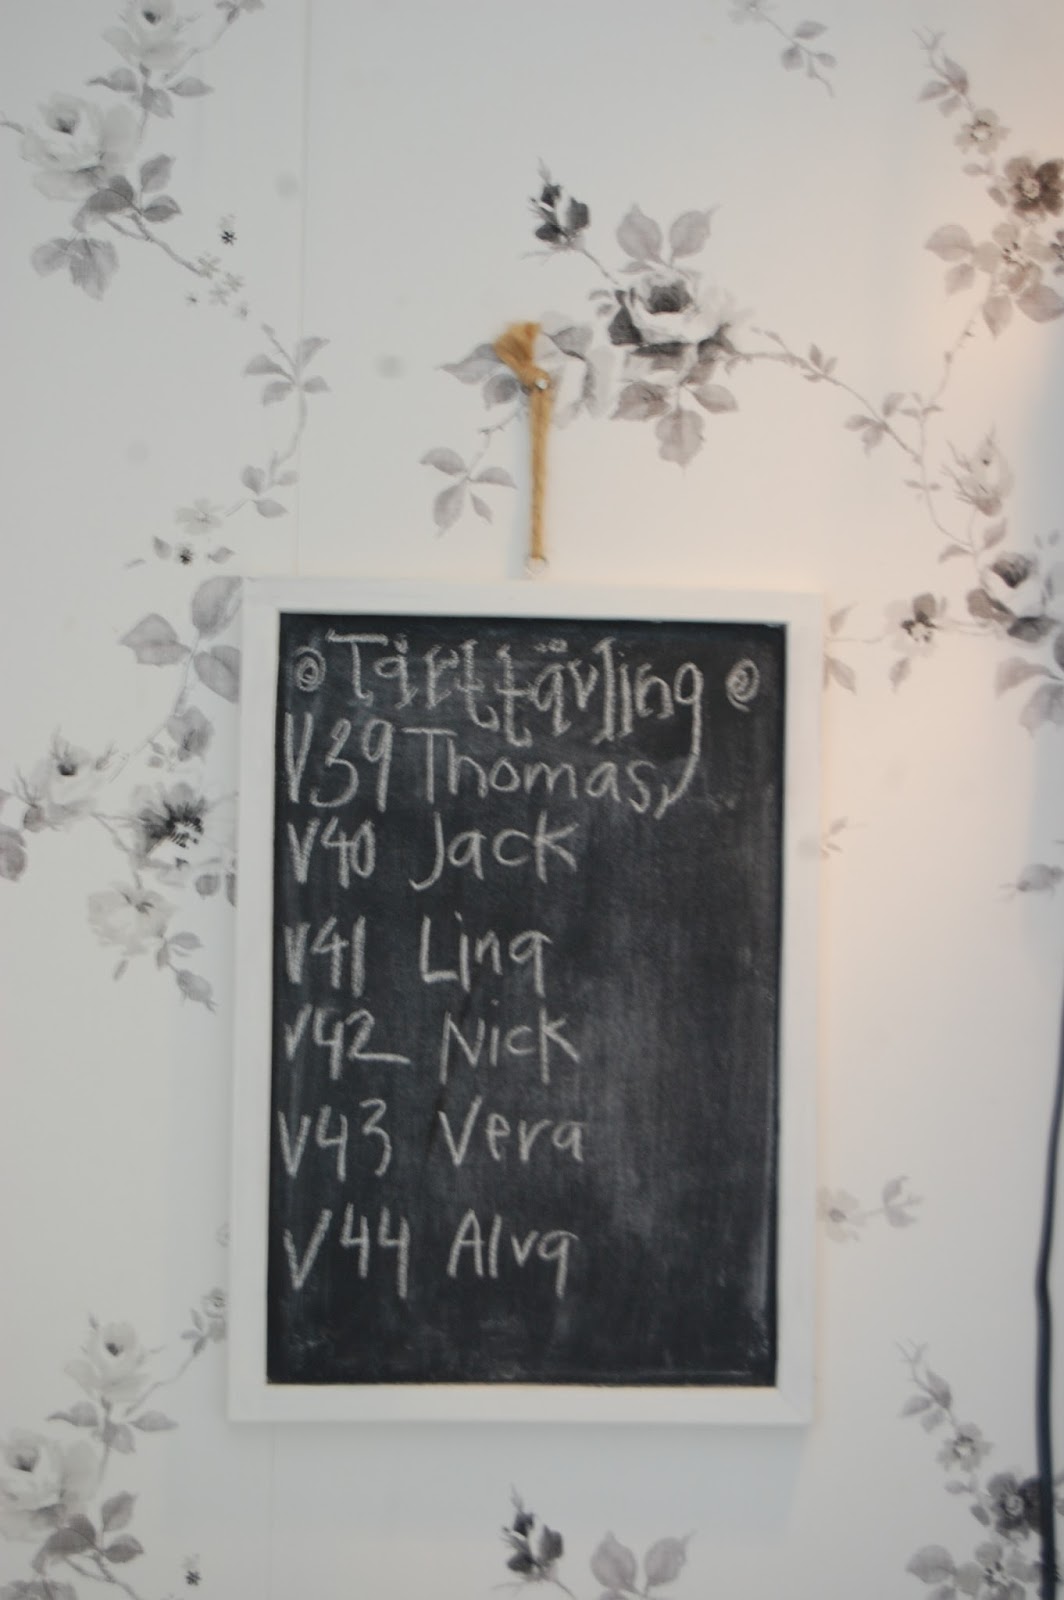 Tårttävling
V39 Thomas
V40 Jack
V41 Lina
V42 Nick
V43 Vera
V44 Alva